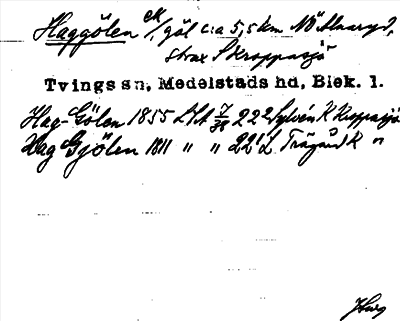 Haggölen ek/ göl c:a 5,5 km NÖ
strax S Kroppasjö
Tvings sn, Medelstads hd, Blek. l.
Hag-Gölen 1855 Lsk 7/38 222 Sylvén K Kropasjö
Hag Gjölen 1811 " " 221 L. Trägård K "